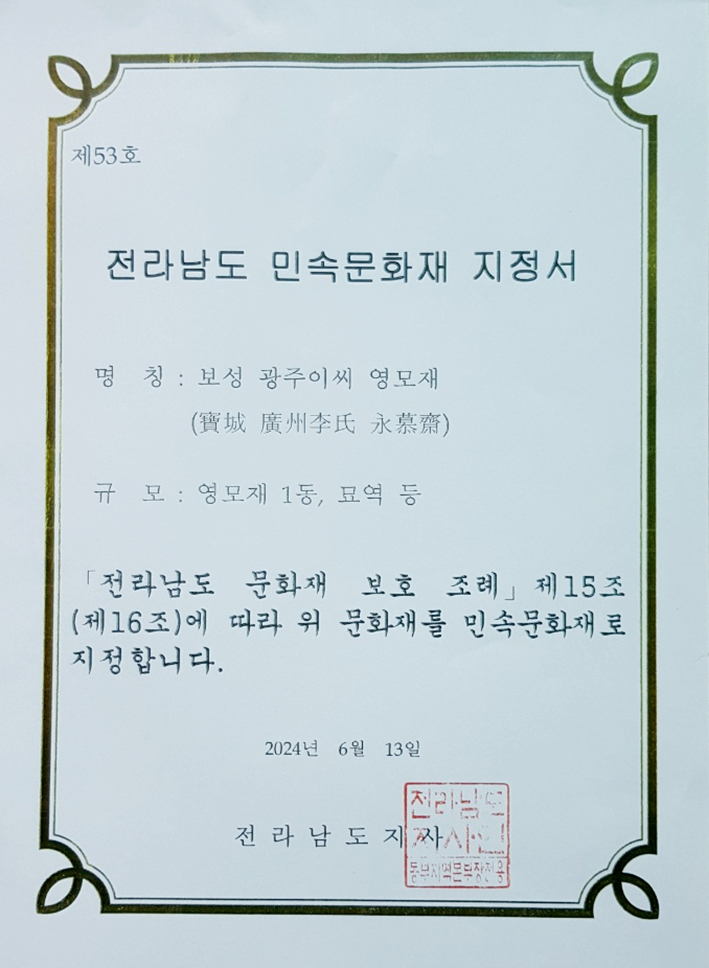 제53호
전라남도 민속문화재 지정서
명 칭 : 보성 광주이씨 영모재
(寶城 廣州李氏 永慕齋)
규 모 : 영모재 1동, 묘역 등
「전라남도 문화재 보호 조례」제15조
(제16조)에 따라 위 문화재를 민속문화재로
지정합니다.
2024년 6월 13일
전 라 남 도 지 사
전라남도
지사인
동부지역본부장전용